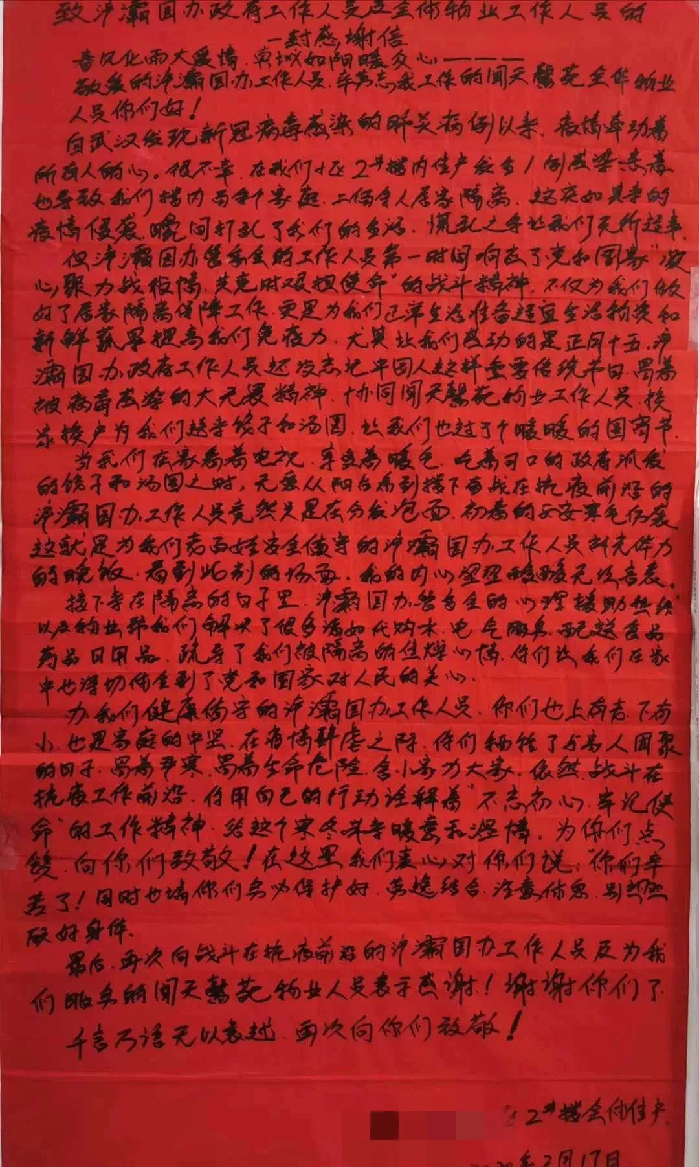 致浐灞国办政府工作人员及全体物业工作人员的
一封感谢信
春风化雨大爱情，真诚如阳暖人心———
敬爱的浐灞国办工作人员，辛苦工作的闻天馨苑全体物业
人员你们好！
自武汉发现新冠病毒感染的肺炎病例以来，疫情牵动着
所有人的心。很不幸，在我们小区2#楼内住户发生1例感染患者
也导致我们楼内 家庭，二百余人居家隔离，这突如其来的
疫情侵袭瞬间打乱了我们的生活，慌乱之余让我们无所适事
但浐灞国办管委会的工作人员第一时间响应了党和国家“凝
心聚力战疫情，共克时艰担使命”的战斗精神，不仅为我们做
好了居家隔离保障工作，更是为我们送来生活准备适宜生活物资和
新鲜蔬果提高我们免疫力，尤其让我们感动的是正月十五，浐
灞国办政府工作人员还没忘记中国人这样重要传统节日，冒着
被病毒感染的大无畏精神，协同闻天馨苑物业工作人员，挨
家挨户为我们送来饺子和汤圆，让我们也过了个暖暖的团圆节
当我们在家看着电视，享受着暖气，吃着可口的政府派发
的饺子和汤圆之时，无意从阳台看到楼下奋战在抗疫前沿的
浐灞国办工作人员竟然只是在分发泡面，初春的西安寒气伤袭
这就是为我们老百姓安全值守的浐灞国办工作人员补充体力
的晚饭，看到此刻的场面，我的内心 暖暖无法言表。
接下来在隔离的日子里，浐灞国办管委会的心理援助热线
以及物业帮我们解决了很多诸如代购水、电、气服务，配送食品
药品日用品，疏导了我们被隔离的焦燥心情，你们让我们在家
中也深切体会到了党和国家对人民的关心。
为我们健康值守的浐灞国办工作人员，你们也上有老下有
小，也是家庭的中坚，在疫情肆虐之际，你们牺牲了与家人团聚
的日子，冒着严寒，冒着生命危险，舍小家为大家，依然战斗在
抗疫工作前沿，你用自己的行动诠释着“不忘初心，牢记使
命”的工作精神，给这个寒冬带来暖意和温情，为你们点
赞，向你们致敬！在这里我们衷心对你们说：你们辛
苦了！同时也请你们务必保护好，劳逸结合，注意休息，别
好身体。
最后，再次向战斗在抗疫前沿的浐灞国办工作人员及为我
们服务的闻天馨苑物业人员表示感谢！谢谢你们了
千言万语无以表达，再次向你们致敬！
2#楼全体住户
2020年2月17日